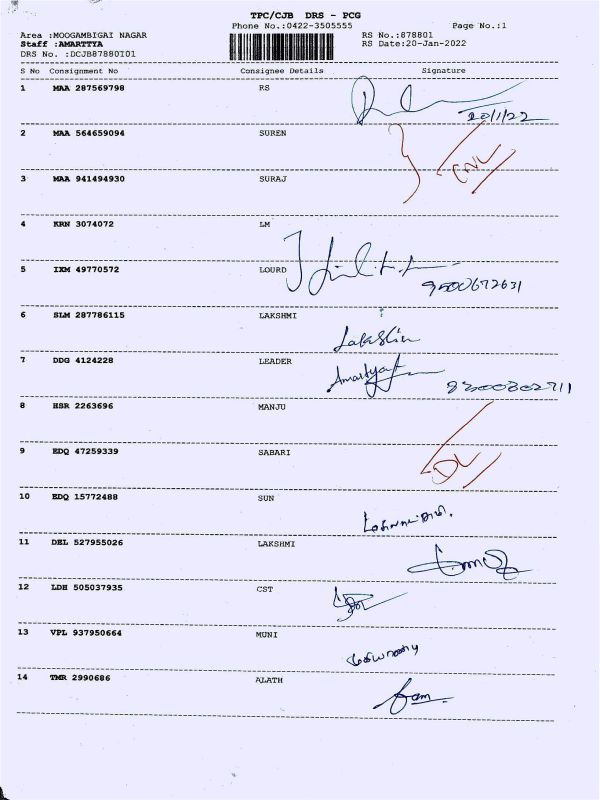 TPC/CJB DRS - PCG
Phone No.:0422-3505555 Page No.:1
Area :MOOGAMBIGAI NAGAR RS No.:878801
Staff :AMARTTYA RS Date:20-Jan-2022
DRS No. :DCJB87880I01
S No Consignment No Consignee Details Signature
1 MAA 287569798 RS
20/1/22
2 MAA 564659094 SUREN
3 MAA 941494930 SURAJ
4 KRN 3074072 LM
5 IXM 49770572 LOURD
9500672631
6 SLM 287786115 LAKSHMI
7 DDG 4124228 LEADER
Amartya
8 HSR 2263696 MANJU
9 EDQ 47259339 SABARI
DL
10 EDQ 15772488 SUN
11 DEL 527955026 LAKSHMI
12 LDH 505037935 CST
13 VPL 937950664 MUNI
14 TMR 2990686 ALATH